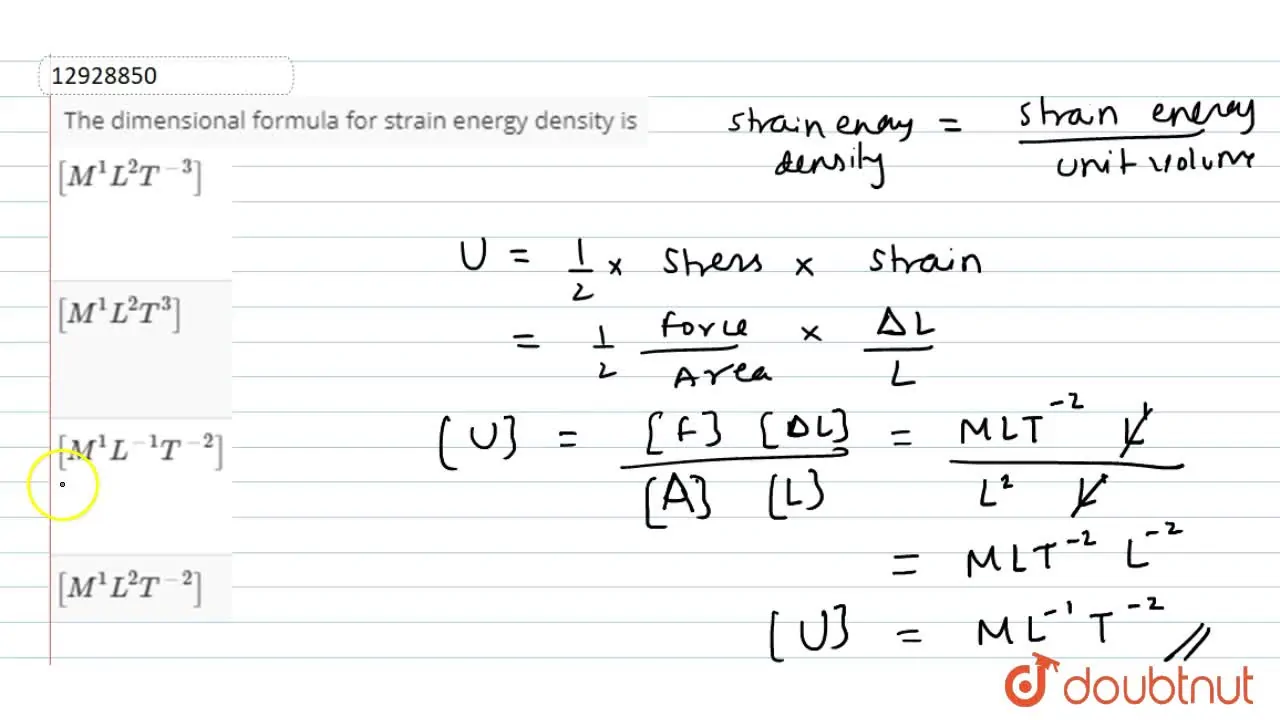 12928850
The dimensional formula for strain energy density is
[M¹L²T⁻³]
[M¹L²T³]
[M¹L⁻¹T⁻²]
[M¹L²T⁻²]
strain enay density = strain energy / unit volume
U = 1/2 × stress × strain
= 1/2 force/Area × ΔL/L
[U] = [F] [ΔL] / [A] [L] = MLT⁻² L / L² L
= MLT⁻² L⁻²
[U] = ML⁻¹ T⁻² //
doubtnut